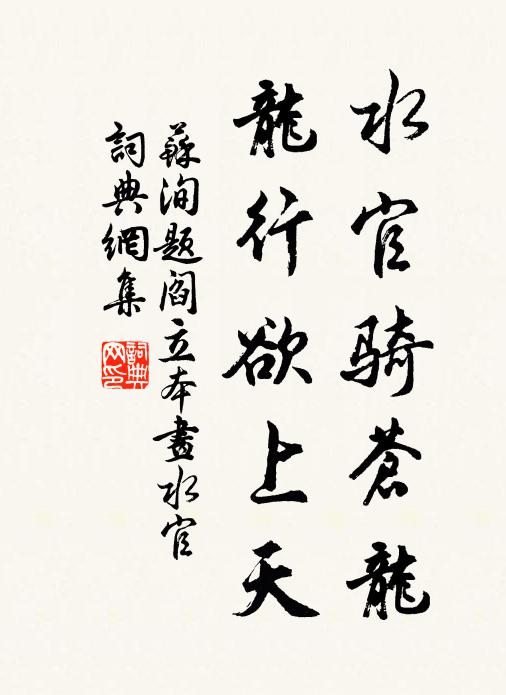 水官騎蒼龍
龍行欲上天
蘇洵題閻立本畫水官
詞典網集
詞典网印